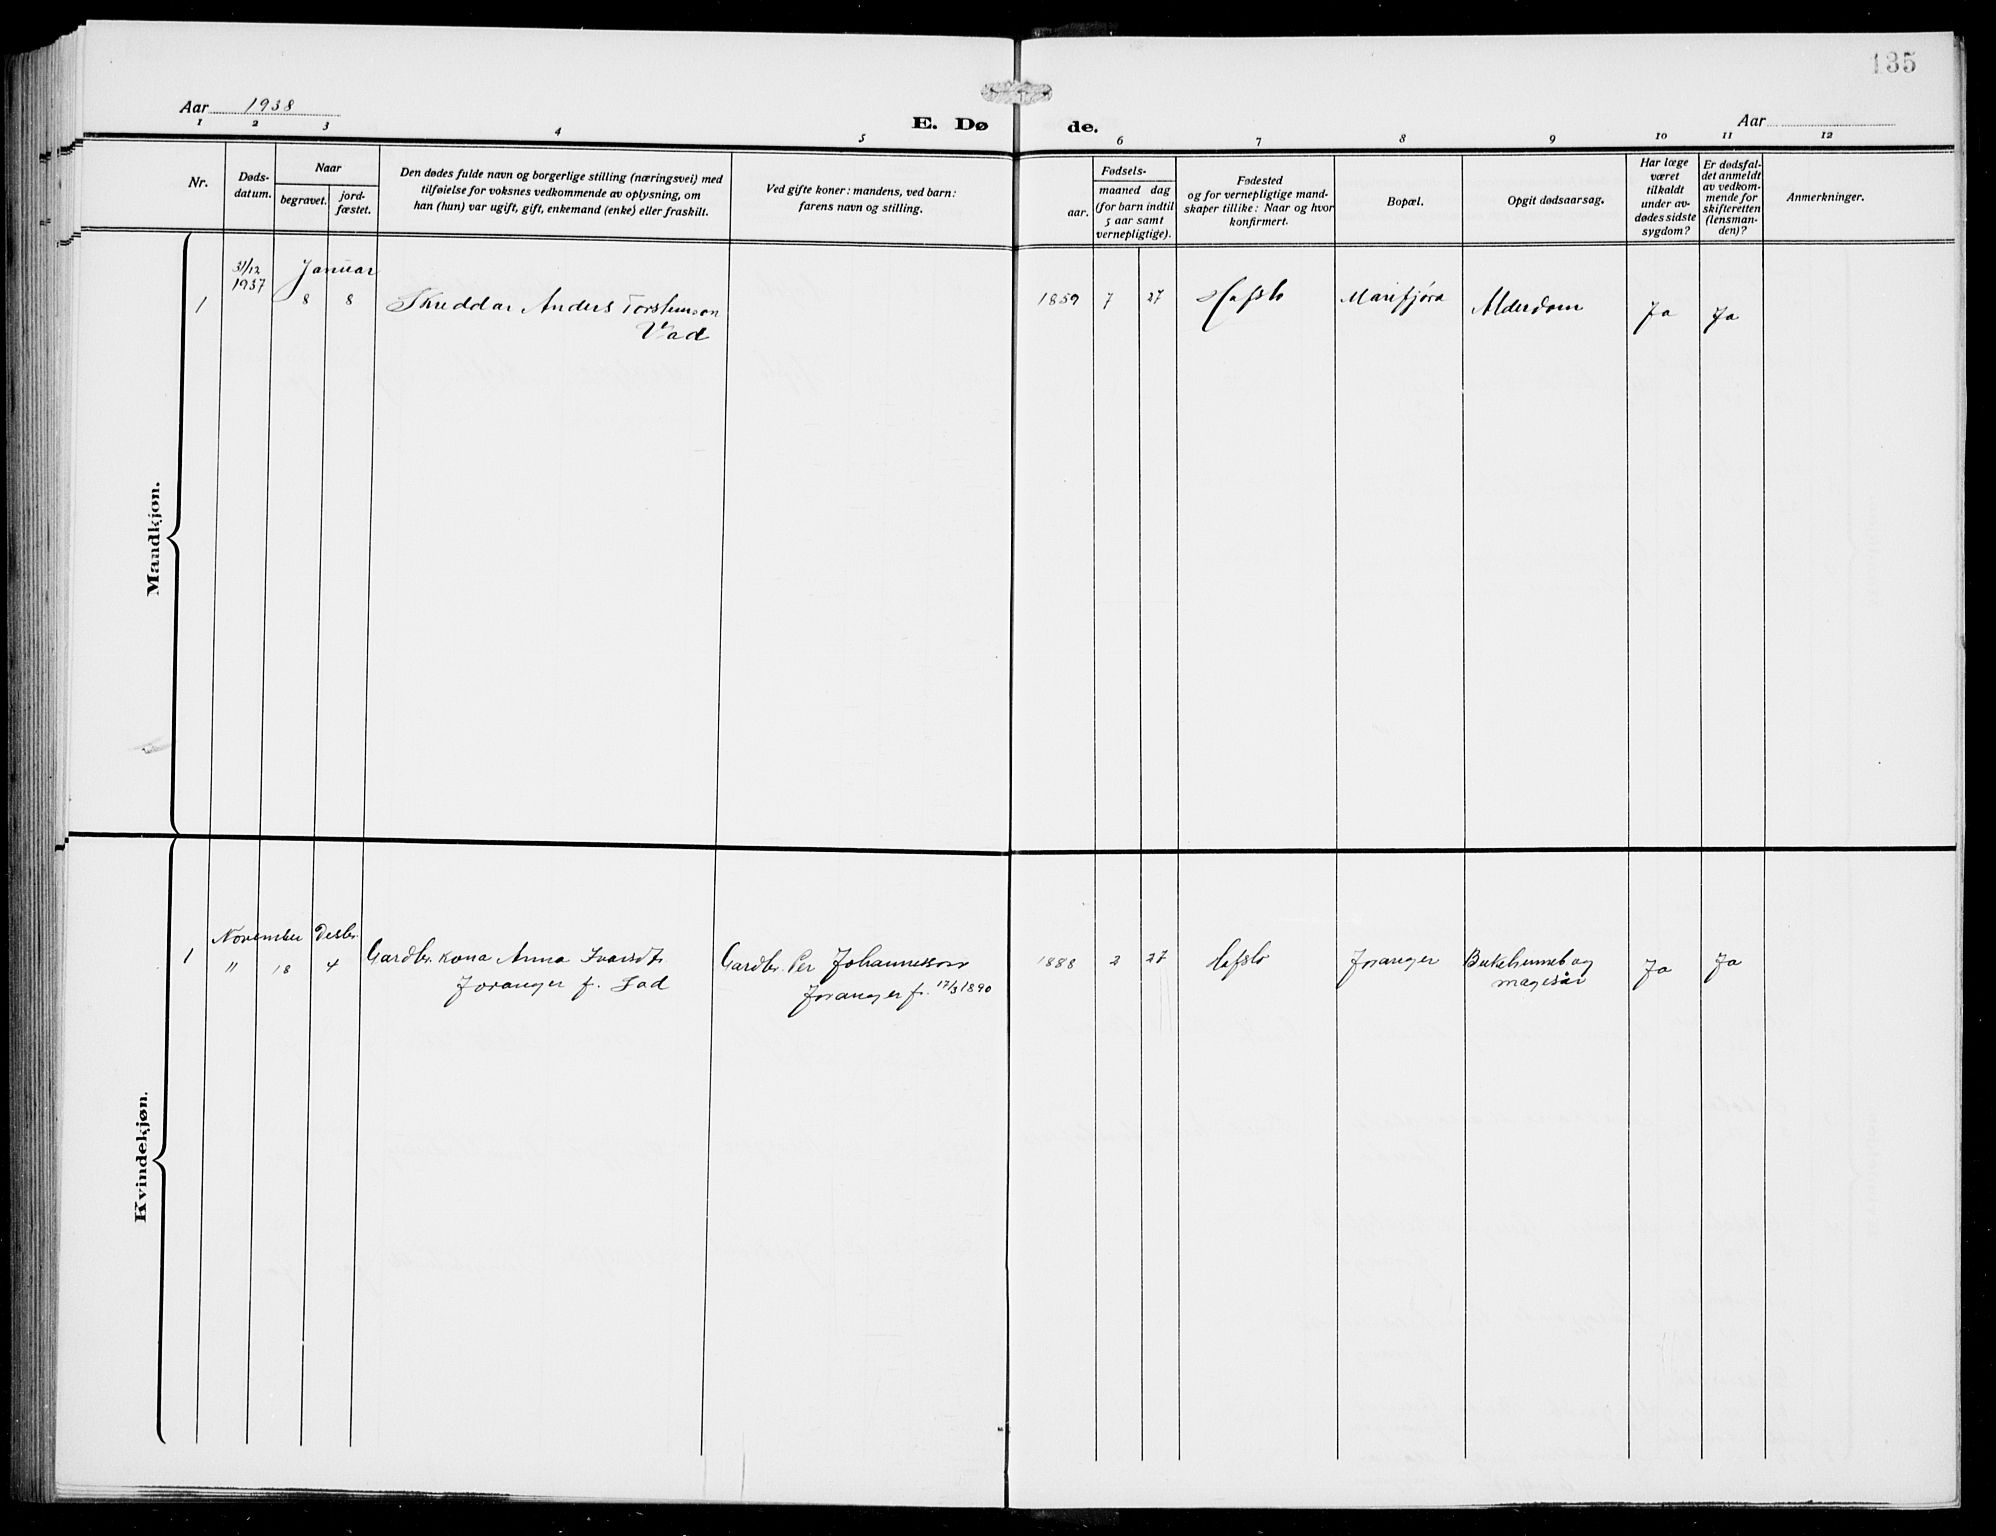 135
Aar 1938
E. Dø
de.
Aar
1 2 3 4 5 6 7 8 9 10 11 12
Nr.
Døds-
datum.
Naar
begravet.
jord-
fæstet.
Den dødes fulde navn og borgerlige stilling (næringsvei) med
tilføielse for voksnes vedkommende av oplysning, om
han (hun) var ugift, gift, enkemand (enke) eller fraskilt.
Ved gifte koner: mandens, ved barn:
farens navn og stilling.
Fødsels-
aar.
maaned dag
(for barn indtil
5 aar samt
vernepligtige).
Fødested
og for vernepligtige mand-
skaper tillike: Naar og hvor
konfirmert.
Bopæl.
Opgit dødsaarsag.
Har læge
været
tilkaldt
under av-
dødes sidste
sygdom?
Er dødsfal-
det anmeldt
av vedkom-
mende for
skifteretten
(lensman-
den)?
Anmerkninger.
Maadkjøn.
31/12 Januar
1937
1 8 8 Skreddar Anders Torstensson 1859 7 27 Hafslo Marifjøra Alderdom Ja Ja
Vad
Kvindekjøn.
November Desbr.
1 " 18 4 Gardbr. kona Anna Ivarsdtr Gardbr. Per Johannesson 1888 2 27 Hafslo Joranger Bukhinneb og Ja Ja
Joranger f. Fad Joranger f. 17/3 1890 magesår